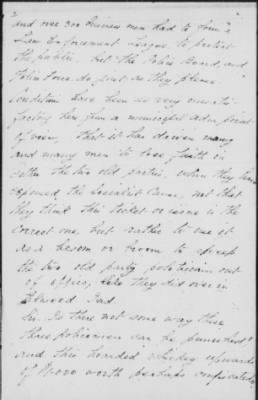 2
and over 300 business men had to form a
Law Enforcement League to protect
the public. But the Police Board, and
Police Force do just as they please.
Condition have been so very unsatis-
factory here from a municipal adm. point
of view, that it has driven many
and many men to lose faith in
either the two old parties, when they have
espoused the Socialist Cause, not that
they think this ticket or cause is the
correct one but rather to use it
as a besom or broom to sweep
the two old party politicians out
of office, like they did over in
Elwood Ind.
Sir. Is there not some way these
three policemen can be punished?
and this hoarded whiskey upwards
of $1,000 worth perhaps confiscated